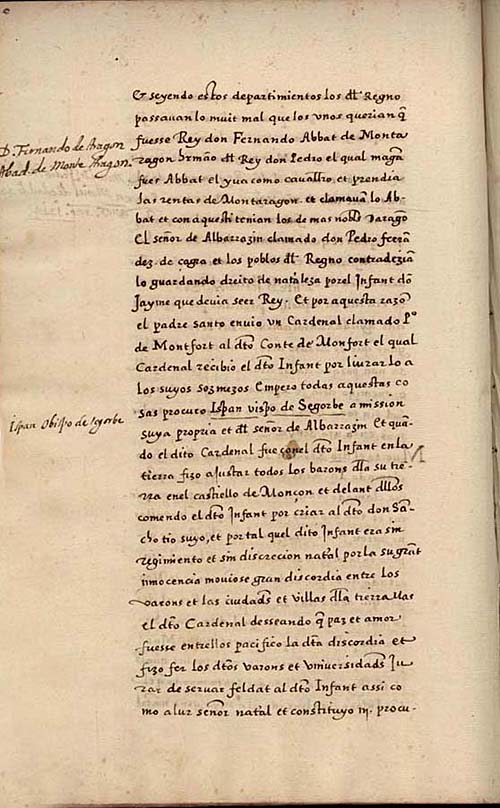 Et seyendo estos departimientos los dl Regno
passavan lo muit mal que los vnos querian q̃
fuesse Rey don Fernando Abbat de Monta
D. Fernando de Aragon
Abad de Monte Aragon.
ragon hr̃mão dl Rey don Pedro el qual magã
fues Abbat el yua como cauallro et prendia
las rentas de Montaragon et clamauã lo Ab-
bat et con aquesti tenian los de mas nobls daragõ
El señor de Albarrazin clamado don Pedro fferrã
dez de çagra et los poblos dl Regno contradeziã
lo guardando dreito de nataleza por el Infant dõ
Jayme que deuia seer Rey. Et por aquesta razõ
el padre santo envio vn Cardenal clamado Pº
de Montfort al dt̃o Conte de Monfort el qual
Cardenal recibio el dt̃o Infant por liurarlo a
los suyos sozmezos Empero todas aquestas co
sas procuro Ispan vispo de Segorbe a mission
Ispan Obispo de segorbe
suya propria et dl señor de Albarrazin Et quã-
do el dito Cardenal fue con el dt̃o Infant en la
tierra fizo ajustar todos los barons dla su tie-
rra en el castiello de Monçon et delant dllos
comendo el dt̃o Infant por criar al dt̃o don Sã-
cho tio suyo, et por tal quel dito Infant era sin
regimiento et sin discrecion natal por la su grãt
innocencia mouiose gran discordia entre los
varons et las ciudads et villas dla tierra Mas
el dt̃o Cardenal desseando q̃ paz et amor
fuesse entrellos pacifico la dt̃a discordia et
fizo fer los dt̃os varons et vniuersidads Ju
rar de seruar feldat al dt̃o Infant assi co
mo a lur señor natal et constituyo iij. procu-